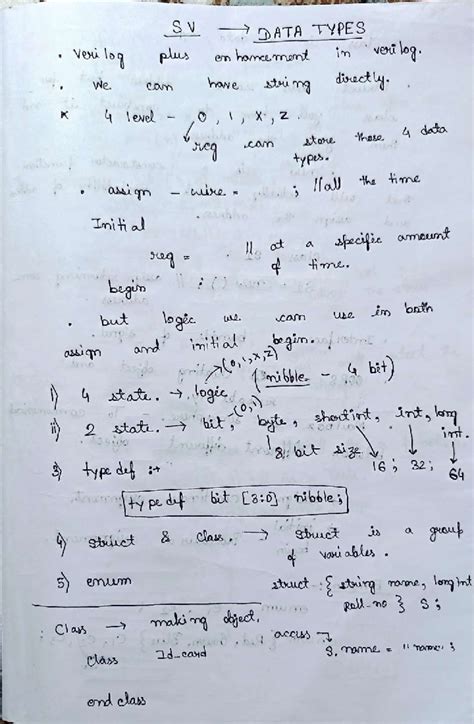 SV → DATA TYPES
• Verilog plus enhancement in verilog.
• We can have string directly.
* 4 level - 0, 1, X, Z
reg can store these 4 data
types.
• assign - wire = ; // all the time
Initial
reg = // at a specific amount
of time.
begin ;
• but logic we can use in both
assign and initial begin.
(0,1,X,Z) (nibble - 4 bit)
1) 4 state. → logic
(0,1)
ii) 2 state. → bit, byte, shortint, int, long
int.
8 bit size 16; 32; 64
3) typedef :→
typedef bit [3:0] nibble;
4) Struct & Class. → Struct is a group
of variables.
5) enum struct {string name, longint
roll-no } S;
Class → making object.
access →
S.name = "name";
Class Id_card
end class